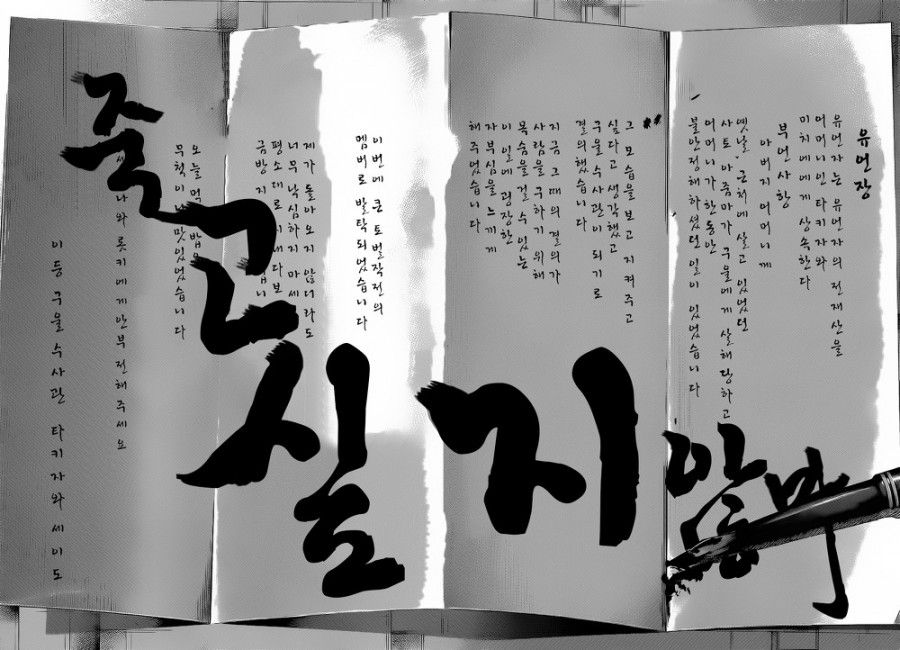 유언장
유언자는 유언자의 전재산을
어머니인 타키자와
미치에에게 상속한다
부언사항
아버지 어머니께
옛날, 근처에 살고 있었던
사토 아줌마가 구울에게 살해당하고
어머니가 한동안
불안정해하셨던 일이 있었습니다
그 모습을 보고 지켜주고
싶다고 생각했고
구울수사관이 되기로
결의했습니다
지금 그때의 결의가
사람을 구하기 위해
목숨을 걸 수 있는
이 일에 굉장한
자부심을 느끼게
해주었습니다
이번에 큰 토벌작전의
멤버로 발탁되었습니다
제가 돌아오지 않더라도
너무 낙심하지 마세
평소대로 지내다보
금방
오늘 먹 밥은
무척이나 맛있었습니다
나와 롯키에게 안부 전해주세요
이등 구울 수사관 타키자와 세이도
죽고
싶지